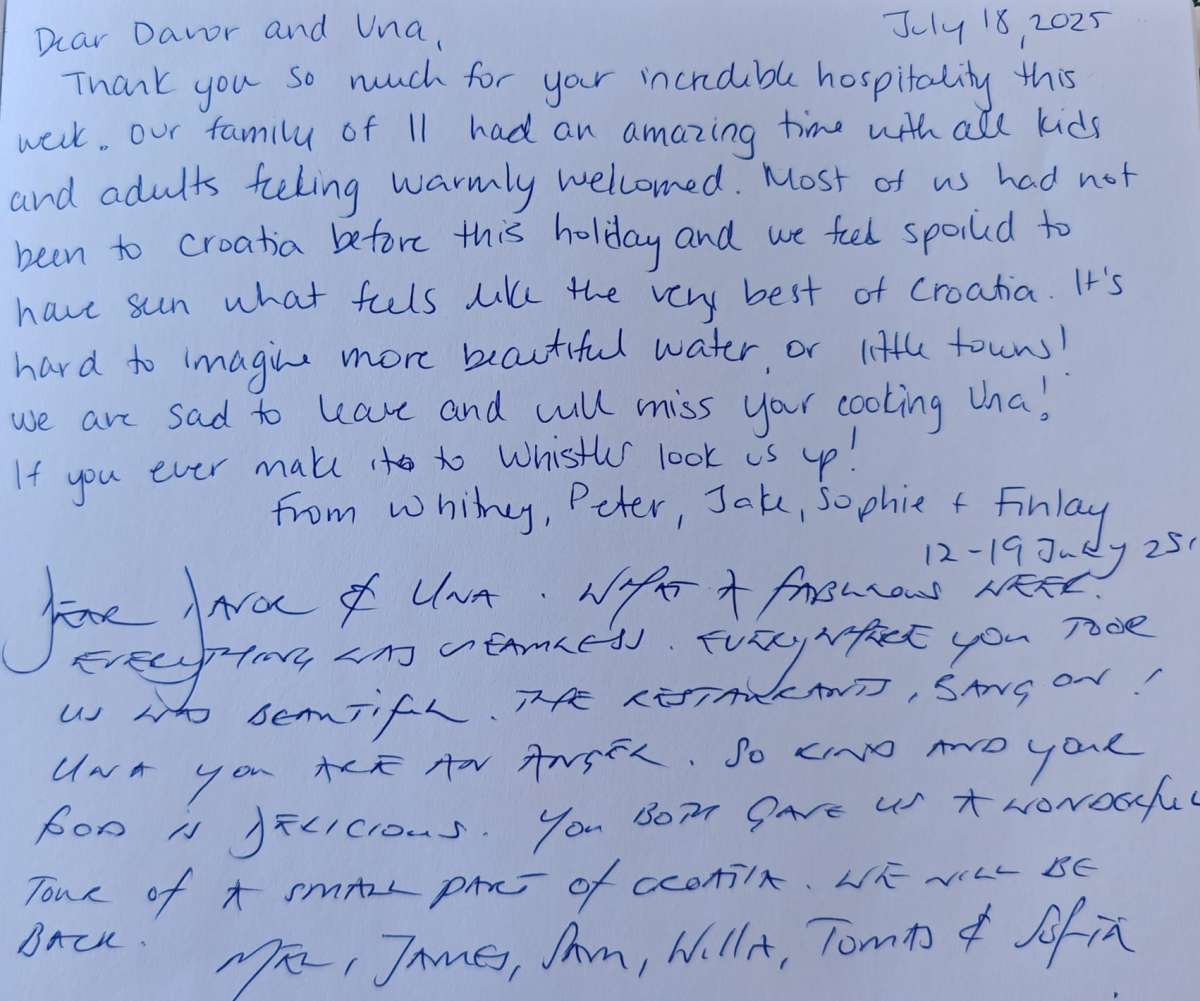 Dear Davor and Una, July 18, 2025
Thank you so much for your incredible hospitality this
week. Our family of 11 had an amazing time with all kids
and adults feeling warmly welcomed. Most of us had not
been to Croatia before this holiday and we feel spoiled to
have seen what feels like the very best of Croatia. It's
hard to imagine more beautiful water, or little towns!
We are sad to leave and will miss your cooking Una!
If you ever make it to Whistler look us up!
from Whitney, Peter, Jake, Sophie + Finlay
12-19 July 25'
DEAR DAVOR & UNA. WHAT A FABULOUS WEEK.
EVERYTHING WAS SEAMLESS. EVERYWHERE YOU TOOK
US WAS BEAUTIFUL. THE RESTAURANTS, BANG ON!
UNA YOU ARE AN ANGEL. SO KIND AND YOUR
FOOD IS DELICIOUS. YOU BOTH GAVE US A WONDERFUL
TOUR OF A SMALL PART OF CROATIA. WE WILL BE
BACK.
MEL, JAMES, SAM, WILLA, TOMAS & SOFIA